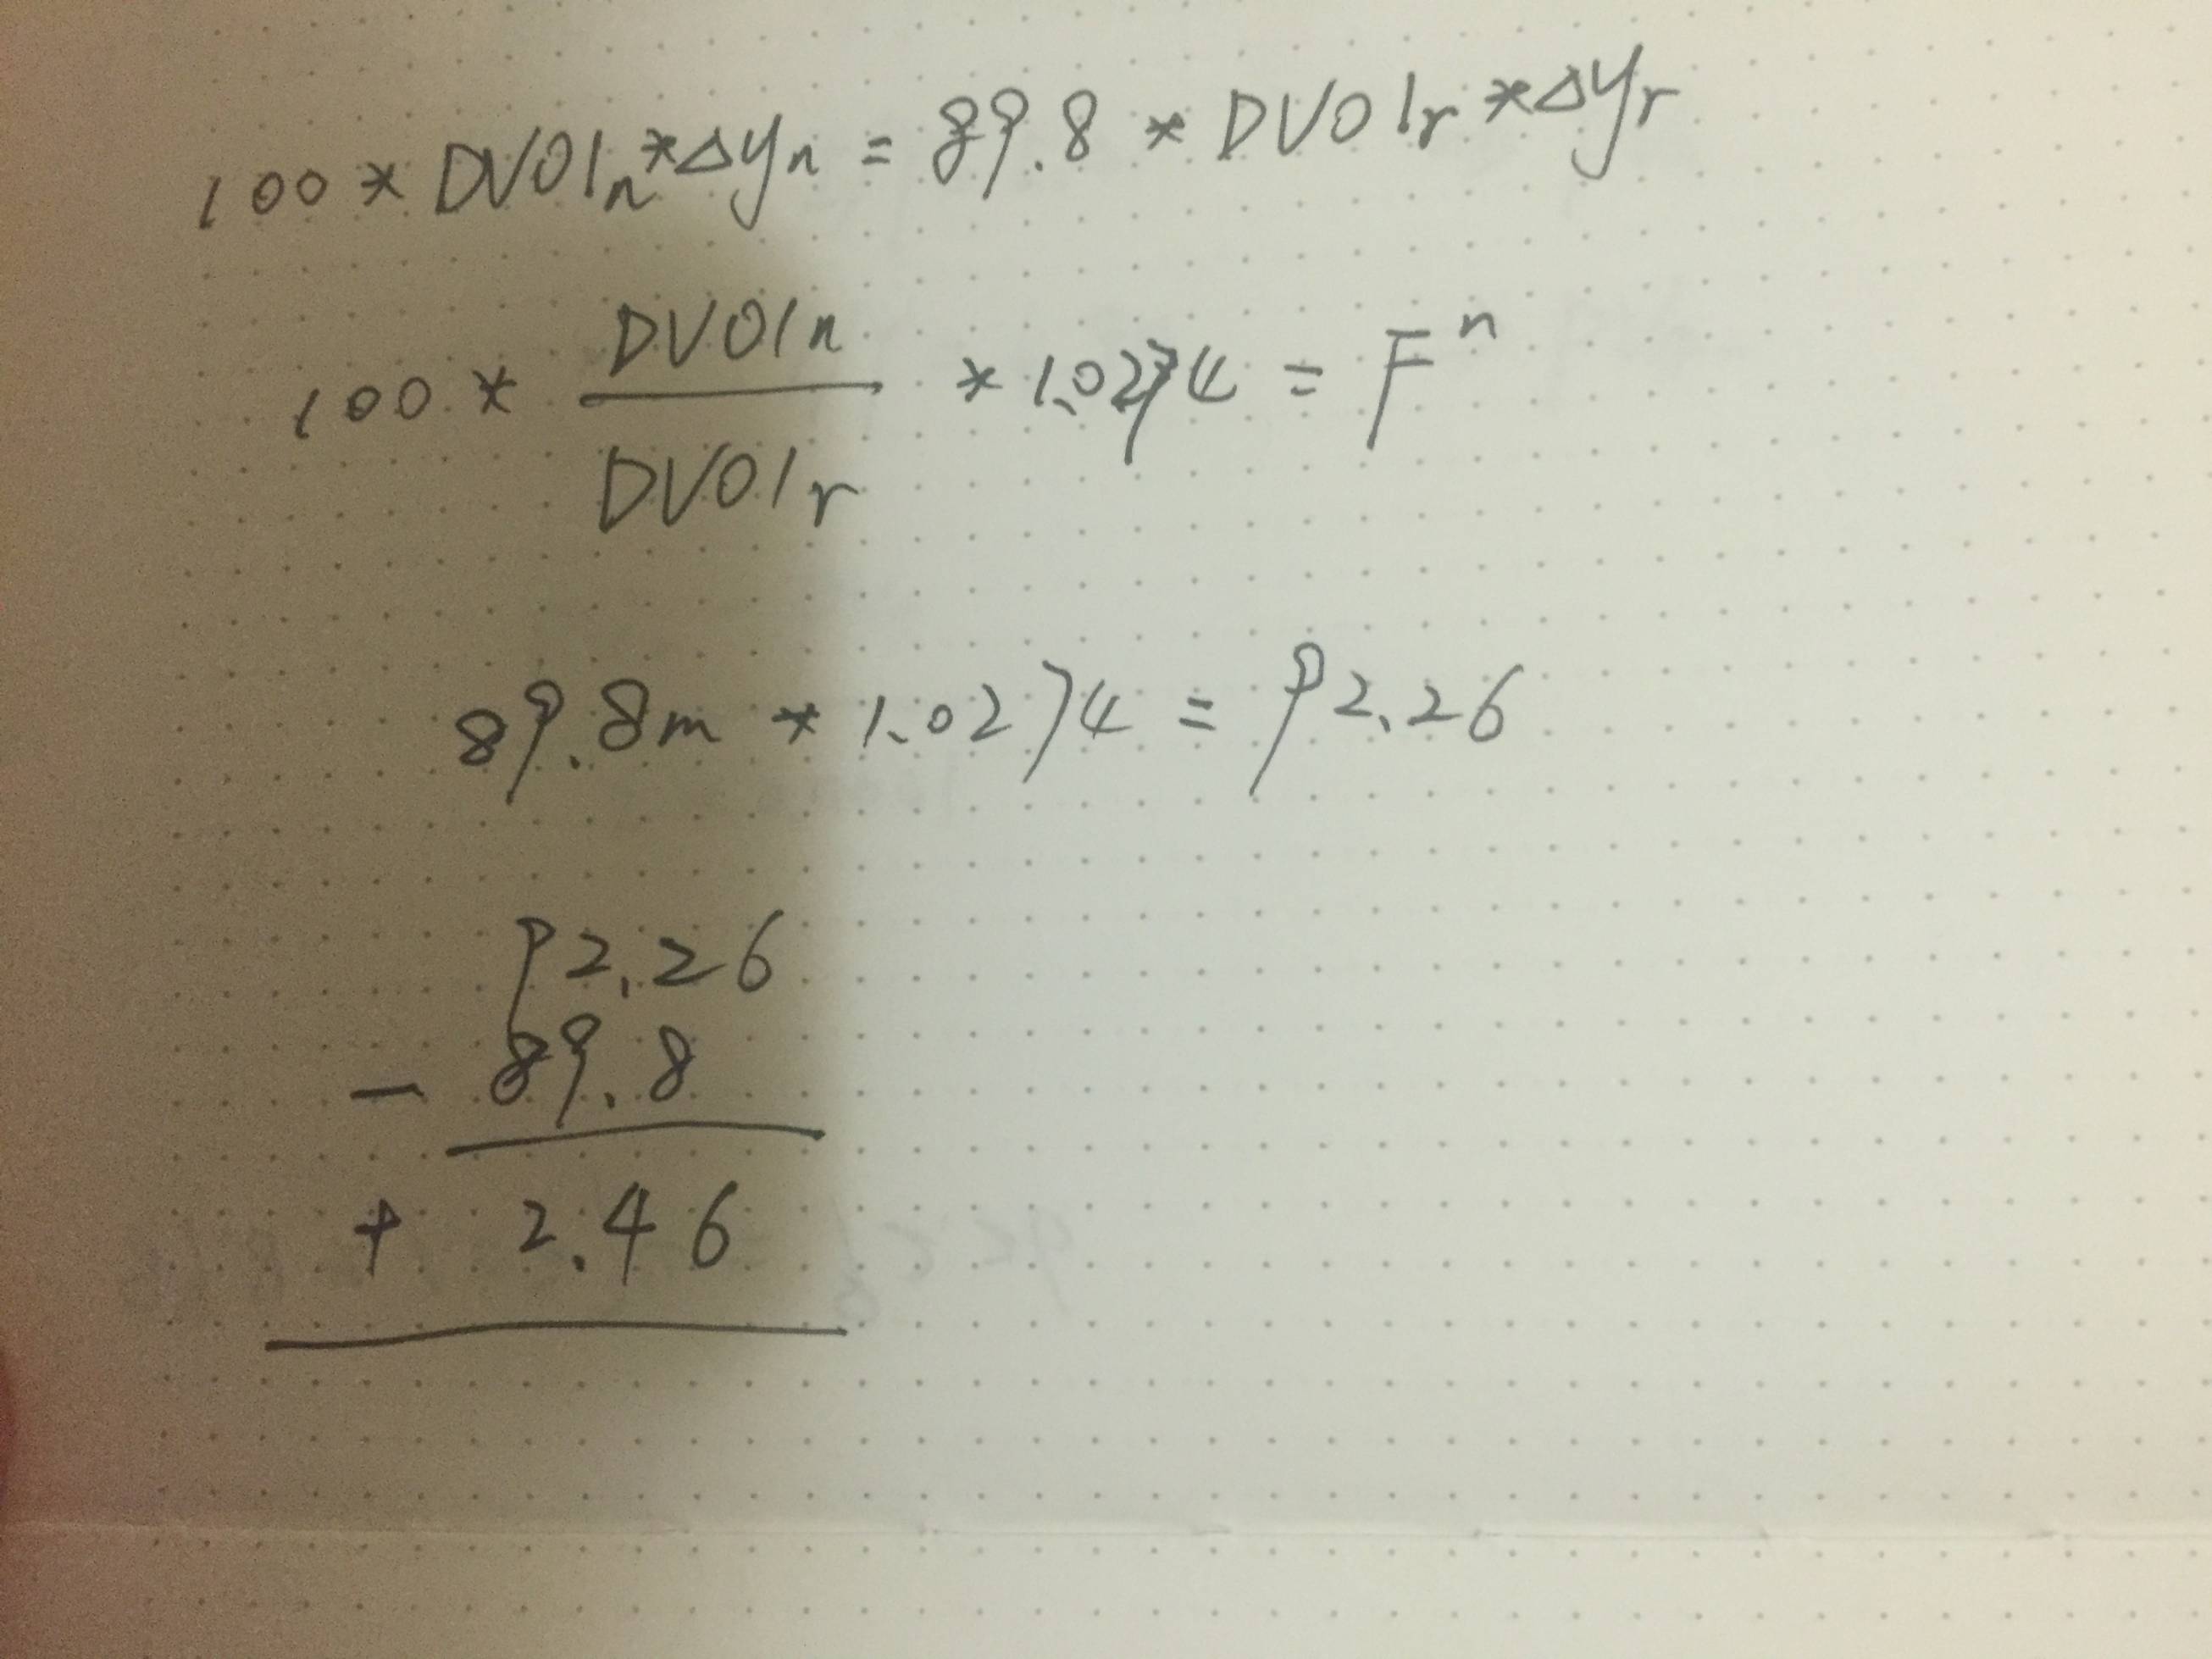 100 * DV01n * Δyn = 89.8 * DV01r * Δyr
100 * DV01n / DV01r * 1.0274 = Fⁿ
89.8m * 1.0274 = 92.26
92.26
- 89.8
+ 2.46